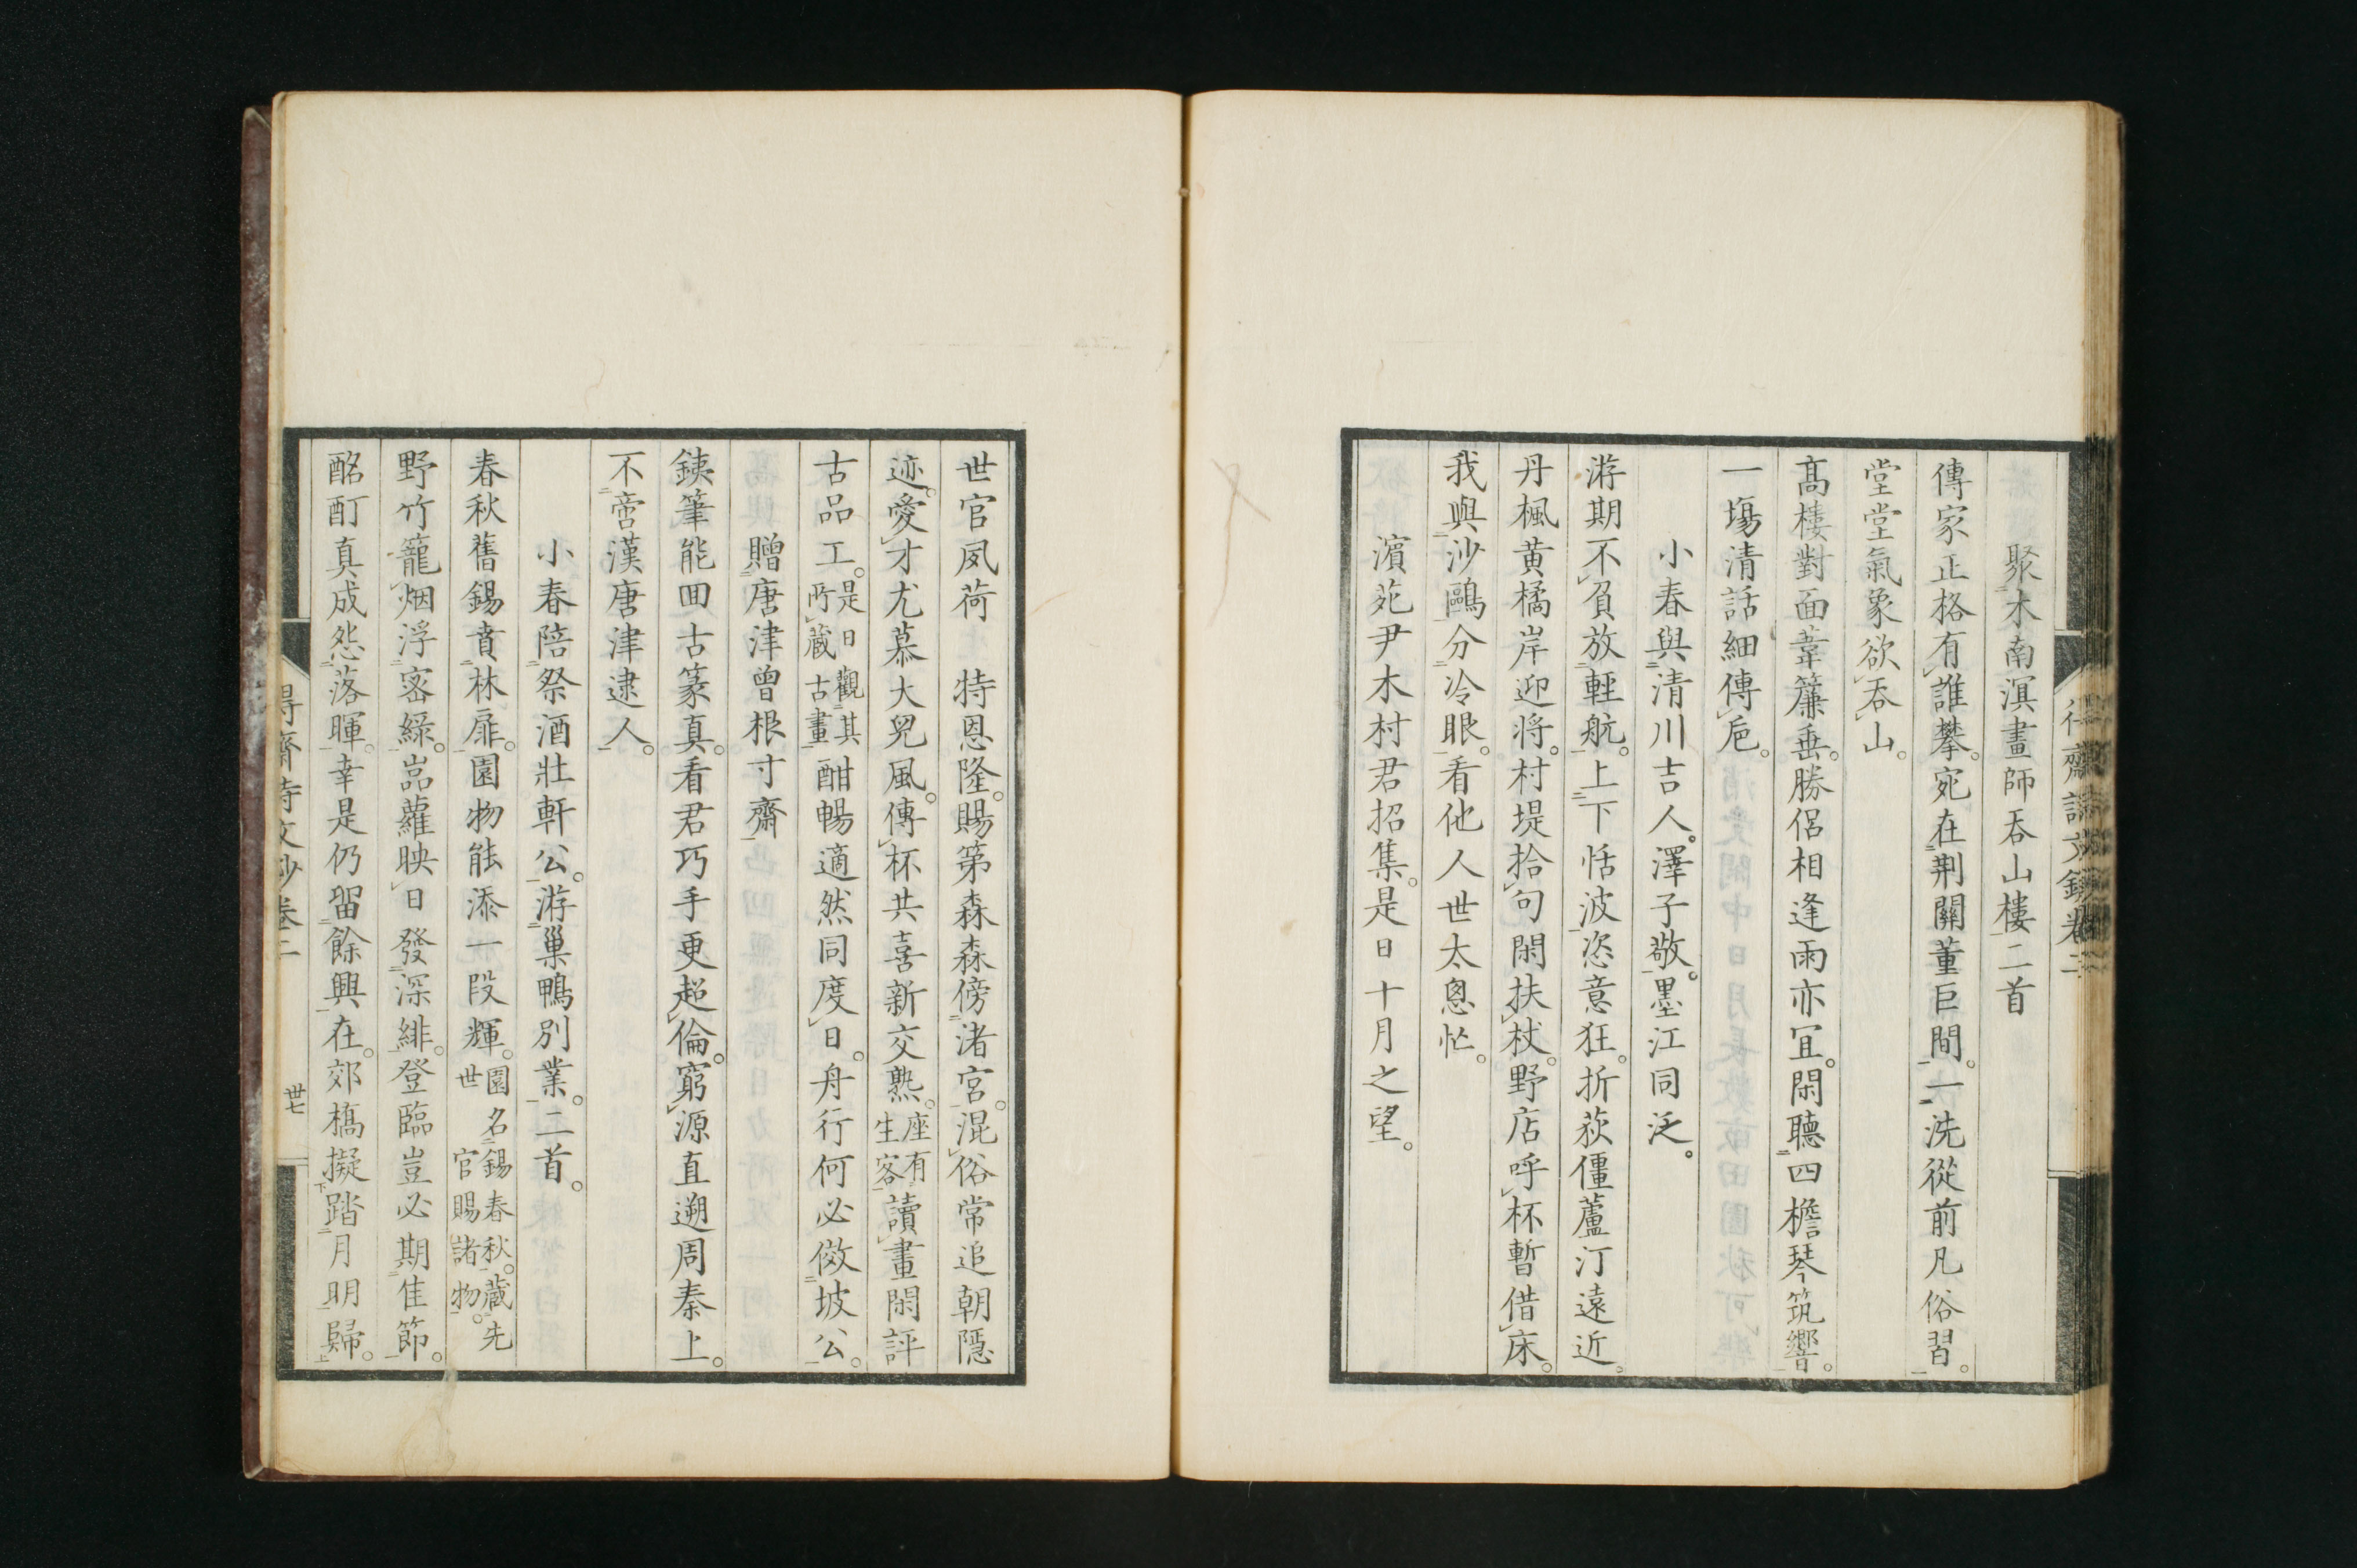 聚木南溟畫師呑山樓二首
傳家正格有誰攀。宛在荆關董巨間。一洗從前凡俗習。
堂堂氣象欲呑山。
髙樓對面葦簾垂。勝侶相逢雨亦冝。閑聽四檐琴筑響。
一塲清話細傳巵。
小春與清川吉人。澤子敬。墨江同泛。
游期不負放輕航。上下恬波恣意狂。折荻僵蘆汀遠近。
丹楓黄橘岸迎将。村堤拾句閑扶杖。野店呼杯暫借床。
我與沙鷗分冷眼。看他人世太悤忙。
濵苑尹木村君招集。是日十月之望。
世官夙荷　特恩隆。賜第森森傍渚宮。混俗常追朝隱
迹。愛才尤慕大兒風。傳杯共喜新交熟。座有生客讀畫閑評
古品工。是日觀其所藏古畫酣暢適然同度日。舟行何必倣坡公。
贈唐津曾根寸齋
銕筆能囬古篆真。看君巧手更超倫。窮源直遡周秦上。
不啻漢唐津逮人。
小春陪祭酒壯軒公。游巢鴨別業。二首。
春秋舊錫賁林扉。園物能添一段輝。園名錫春秋。藏先世官賜諸物。
野竹籠烟浮宻緑。嵓蘿映日發深緋。登臨豈必期佳節。
酩酊真成怨落暉。幸是仍留餘興在。郊橋擬踏月明歸。
得齋詩文鈔卷二
得齋詩文鈔卷二
丗七